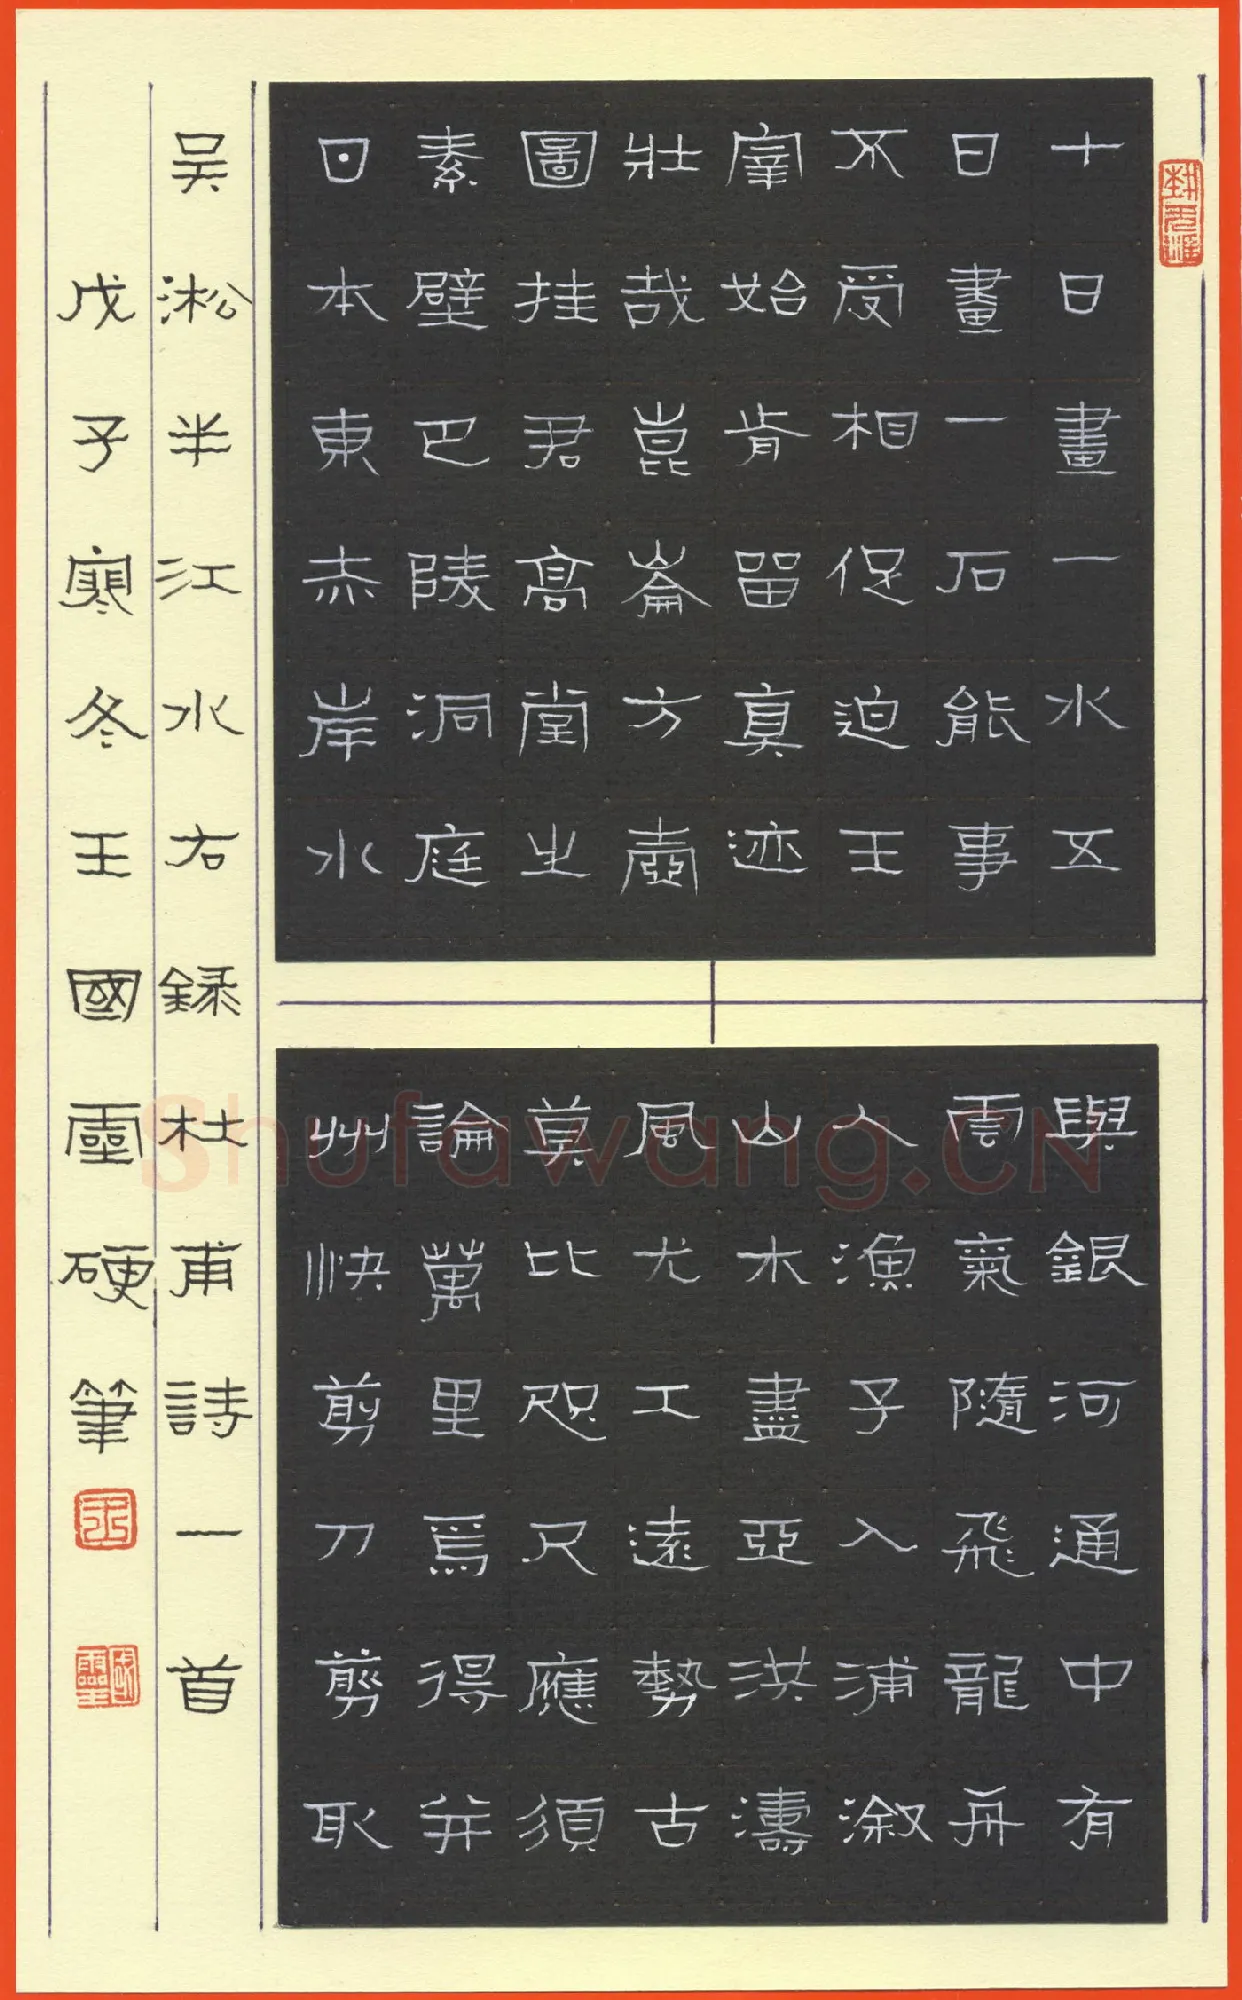 十日畫一水五
日畫一石能事
不受相促迫王
宰始肯留真迹
壯哉崑崙方壺
圖挂君高堂之
素壁巴陵洞庭
日本東赤岸水
與銀河通中有
雲氣隨飛龍舟
人漁子入浦漵
山木盡亞洪濤
風尤工遠勢古
莫比咫尺應須
論萬里焉得并
州快剪刀剪取
吴淞半江水右録杜甫詩一首
戊子寒冬王國靈硬筆
王
國靈
Shufawang.CN